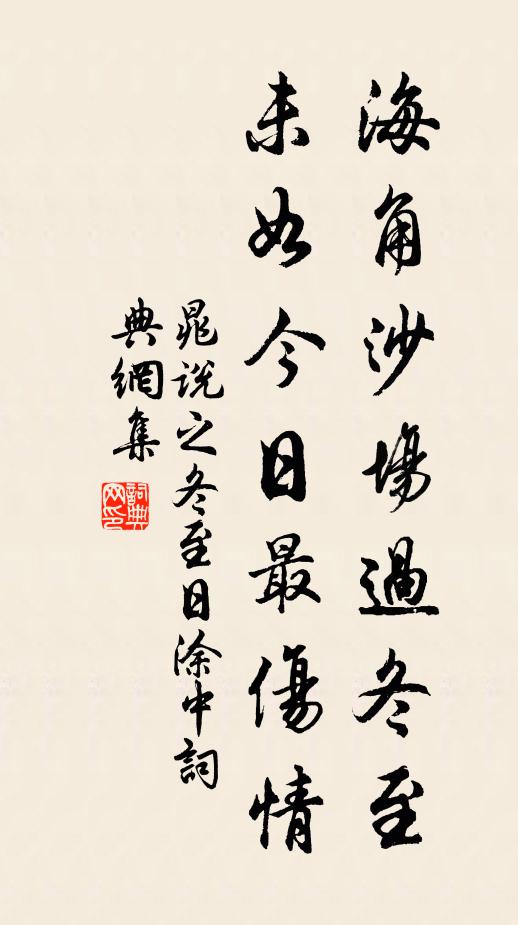 海角沙場過冬至
未如今日最傷情
晁說之冬至日涂中詞
典網集
詞典
网印